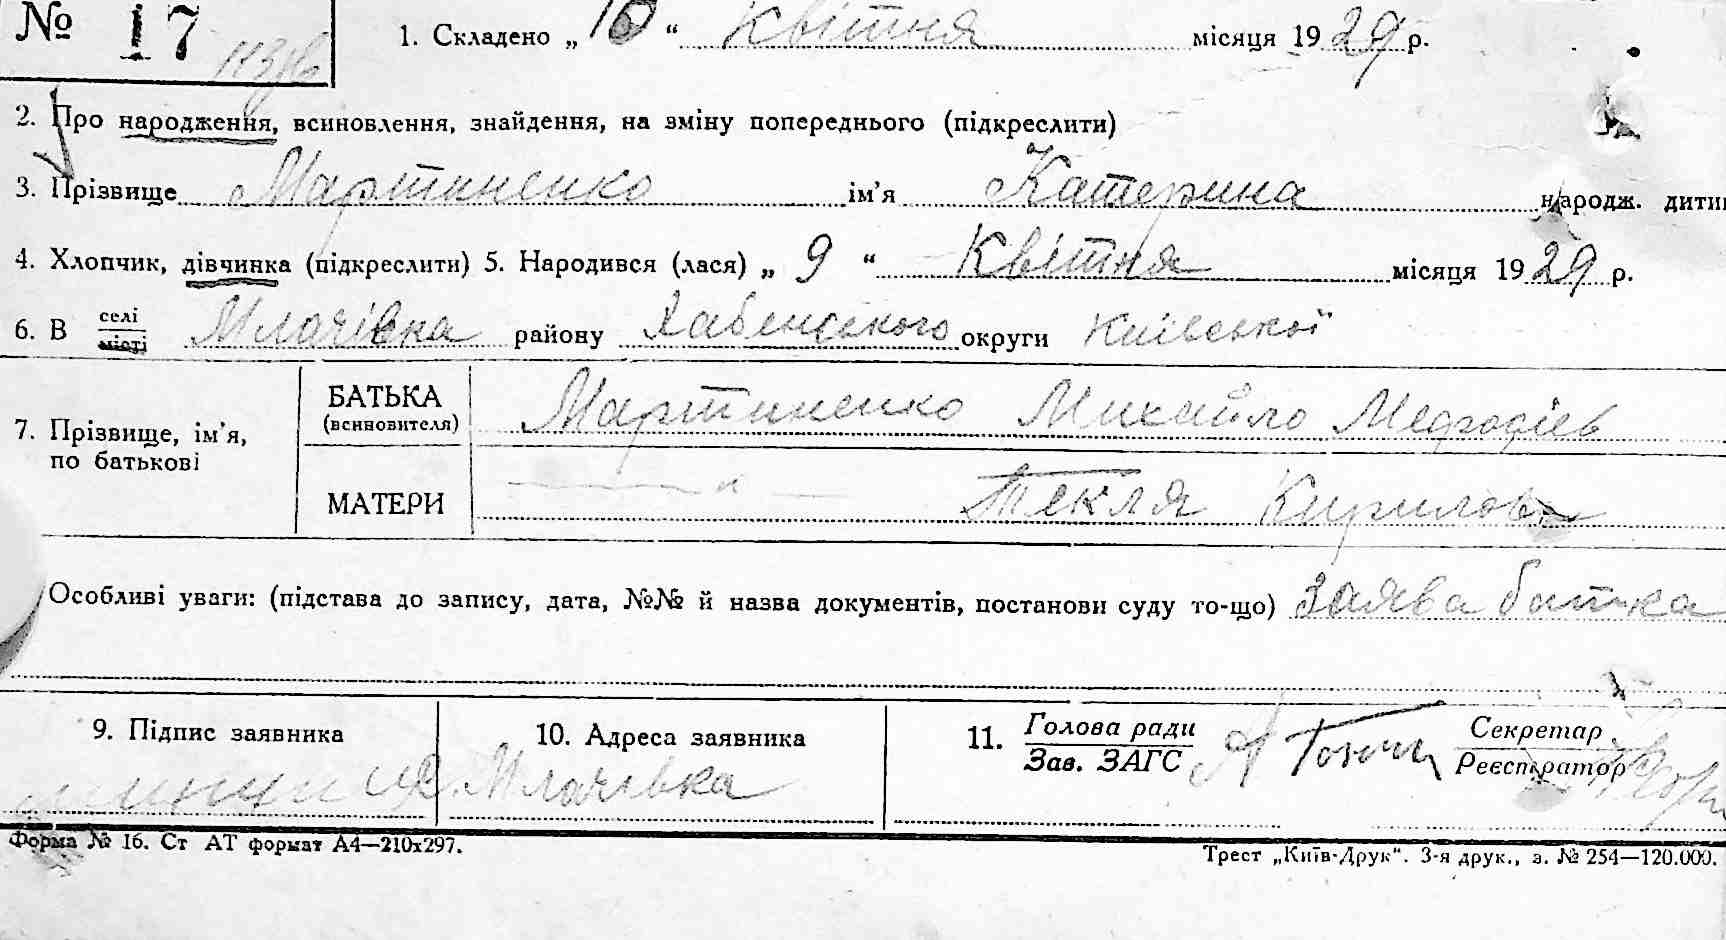 № 17 1. Складено „ 10 “ Квітня місяця 1929 р.
2. Про народження, всиновлення, знайдення, на зміну попереднього (підкреслити)
3. Прізвище Мартиненко ім’я Катерина народж. дити
4. Хлопчик, дівчинка (підкреслити) 5. Народився (лася) „ 9 “ Квітня місяця 1929 р.
6. В селі місті Млачівка району Хабенського округи Київської
7. Прізвище, ім’я, по батькові
БАТЬКА (всиновителя) Мартиненко Михайло Мефодієв
МАТЕРИ — „ — Текля Кирилов
Особливі уваги: (підстава до запису, дата, №№ й назва документів, постанови суду то-що) Заява батька
9. Підпис заявника 10. Адреса заявника 11. Голова ради Зав. ЗАГС Секретар Реєстратор
С. Млачівка
Форма № 16. Ст АТ формат А4—210х297.
Трест „Київ-Друк“. 3-я друк., з. № 254—120.000.